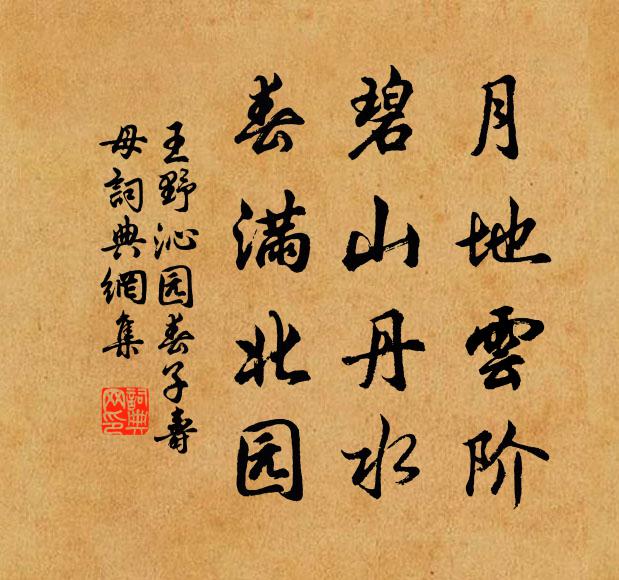 月地雲阶
碧山丹水
春满北园
王野沁园春子寿
母詞典網集
詞典
网印